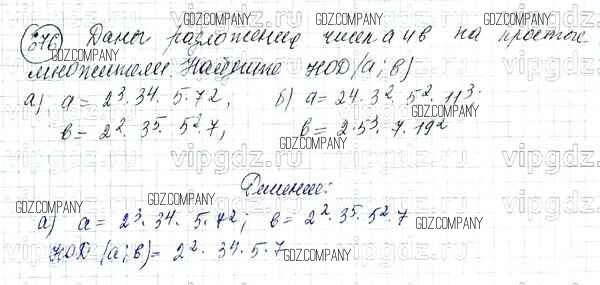 676 Даны разложение чисел a и в на простые
множители. Найдите НОД (a; в)
а) a = 2³. 3⁴. 5. 7², б) a = 2⁴. 3². 5². 11³.
в = 2². 3⁵. 5². 7, в = 2. 5³. 7. 19²
Решение:
а) a = 2³. 3⁴. 5. 7²; в = 2². 3⁵. 5². 7
НОД (a; в) = 2². 3⁴. 5. 7
GDZ.COMPANY
vipgdz.ru